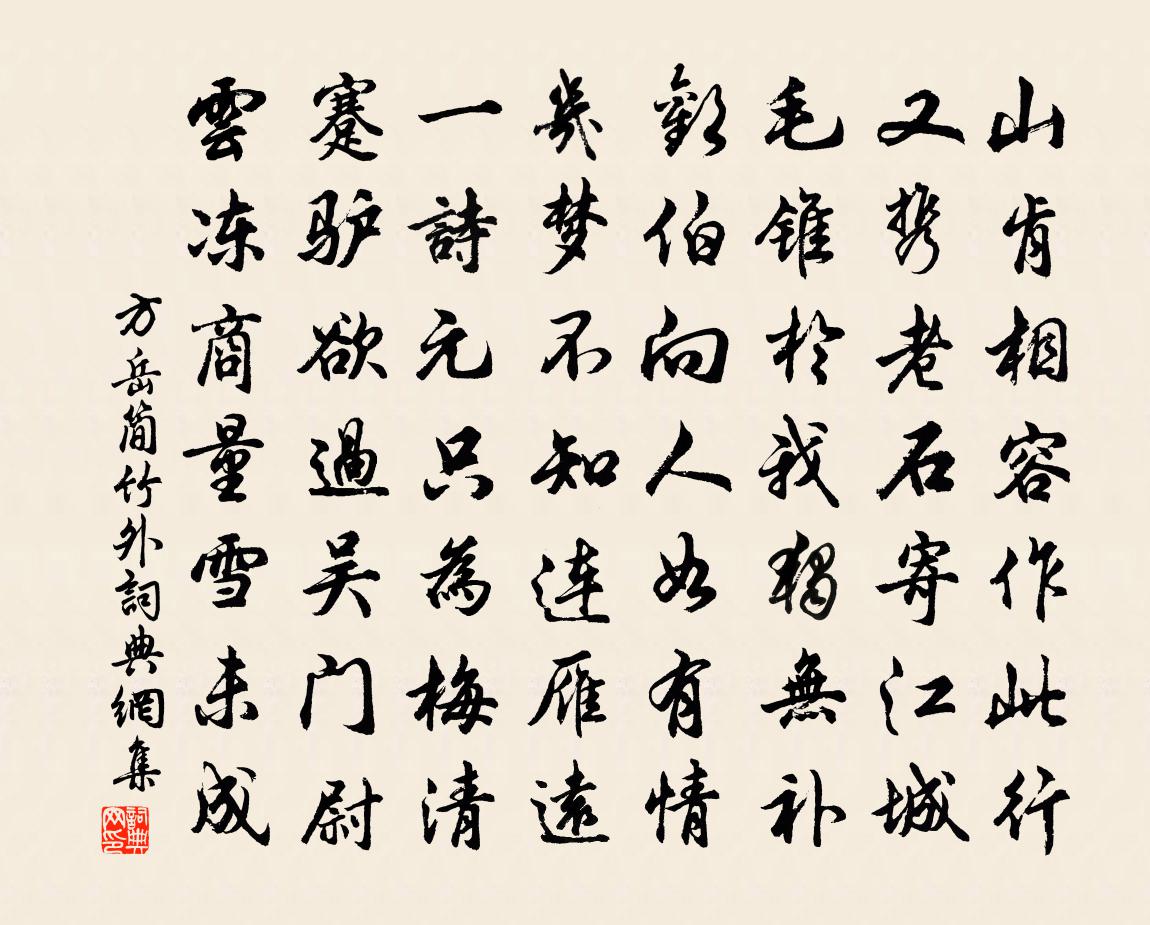 山肯相容作此行
又携老石寄江城
毛锥於我独無补
歡伯向人如有情
幾梦不知連雁遠
一詩元只為梅清
蹇驴欲過吴门尉
雲冻商量雪未成
方岳简竹外詞典網集
詞典网印